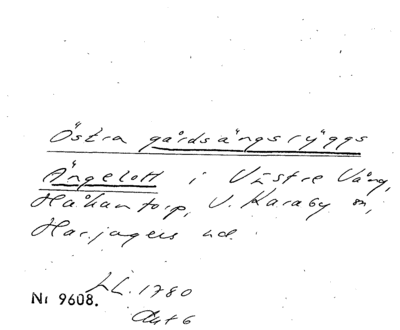 Östra gårdsängsryggs
Ängelott i Västre Vång,
Håkantorp, V. Karaby sn,
Harjagers hd.
LL. 1780
Nr 9608.
Akt 6